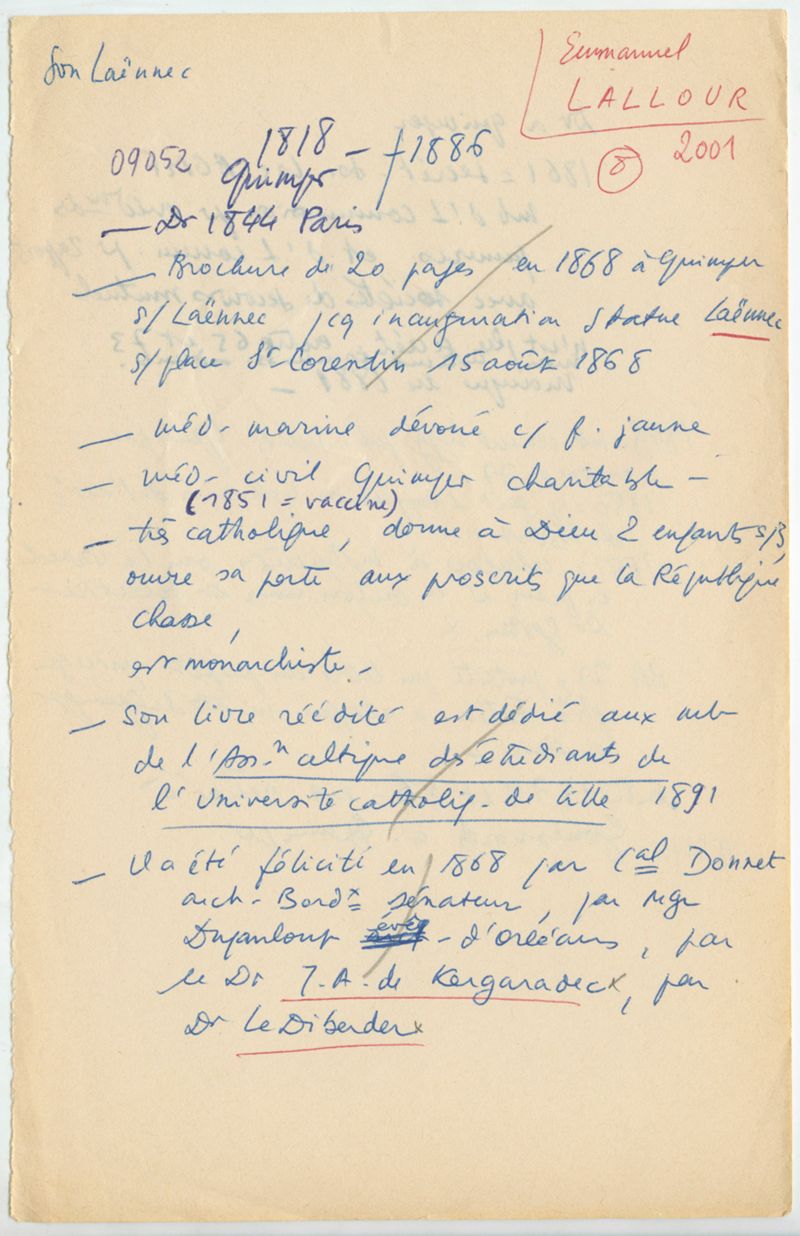 Son Laënnec
Emmanuel
LALLOUR
8 2001
09052 1818 – †1886
Quimper
— Dr 1844 Paris
— Brochure de 20 pages en 1868 à Quimper
s/Laënnec pcq inauguration statue Laënnec
s/place St Corentin 15 août 1868
— méd. marine dévoué c/ f. jaune
— méd. civil Quimper charitable –
(1851 = vaccine)
— très catholique, donne à Dieu 2 enfants s/3,
ouvre sa porte aux proscrits que la République
chasse,
est monarchiste. –
— Son livre réédité est dédié aux mb
de l'Ass.n celtique des étudiants de
l'Université catholiq. de Lille 1891
— Il a été félicité en 1868 par Cal Donnet
arch. Bordx sénateur, par Mgr
Dupanloup évêq – d'Orléans, par
le Dr J.A. de Kergaradec x, par
Dr Le Diberder x